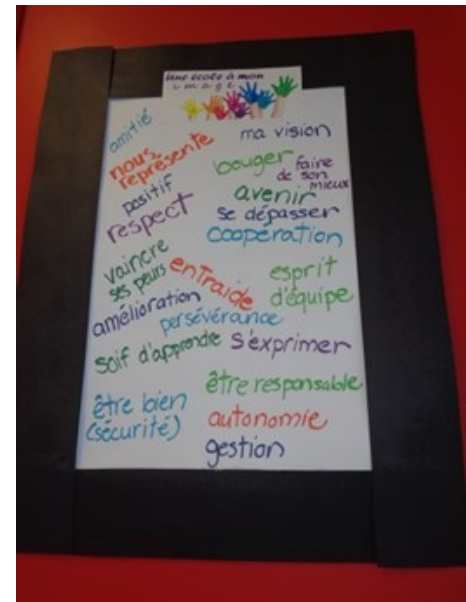 Une école à mon
image
amitié
ma vision
nous
représente
bouger
faire
de son
mieux
positif
avenir
respect
se dépasser
coopération
vaincre
ses peurs
entraide
esprit
d'équipe
amélioration
persévérance
soif d'apprendre
s'exprimer
être responsable
être bien
(sécurité)
autonomie
gestion